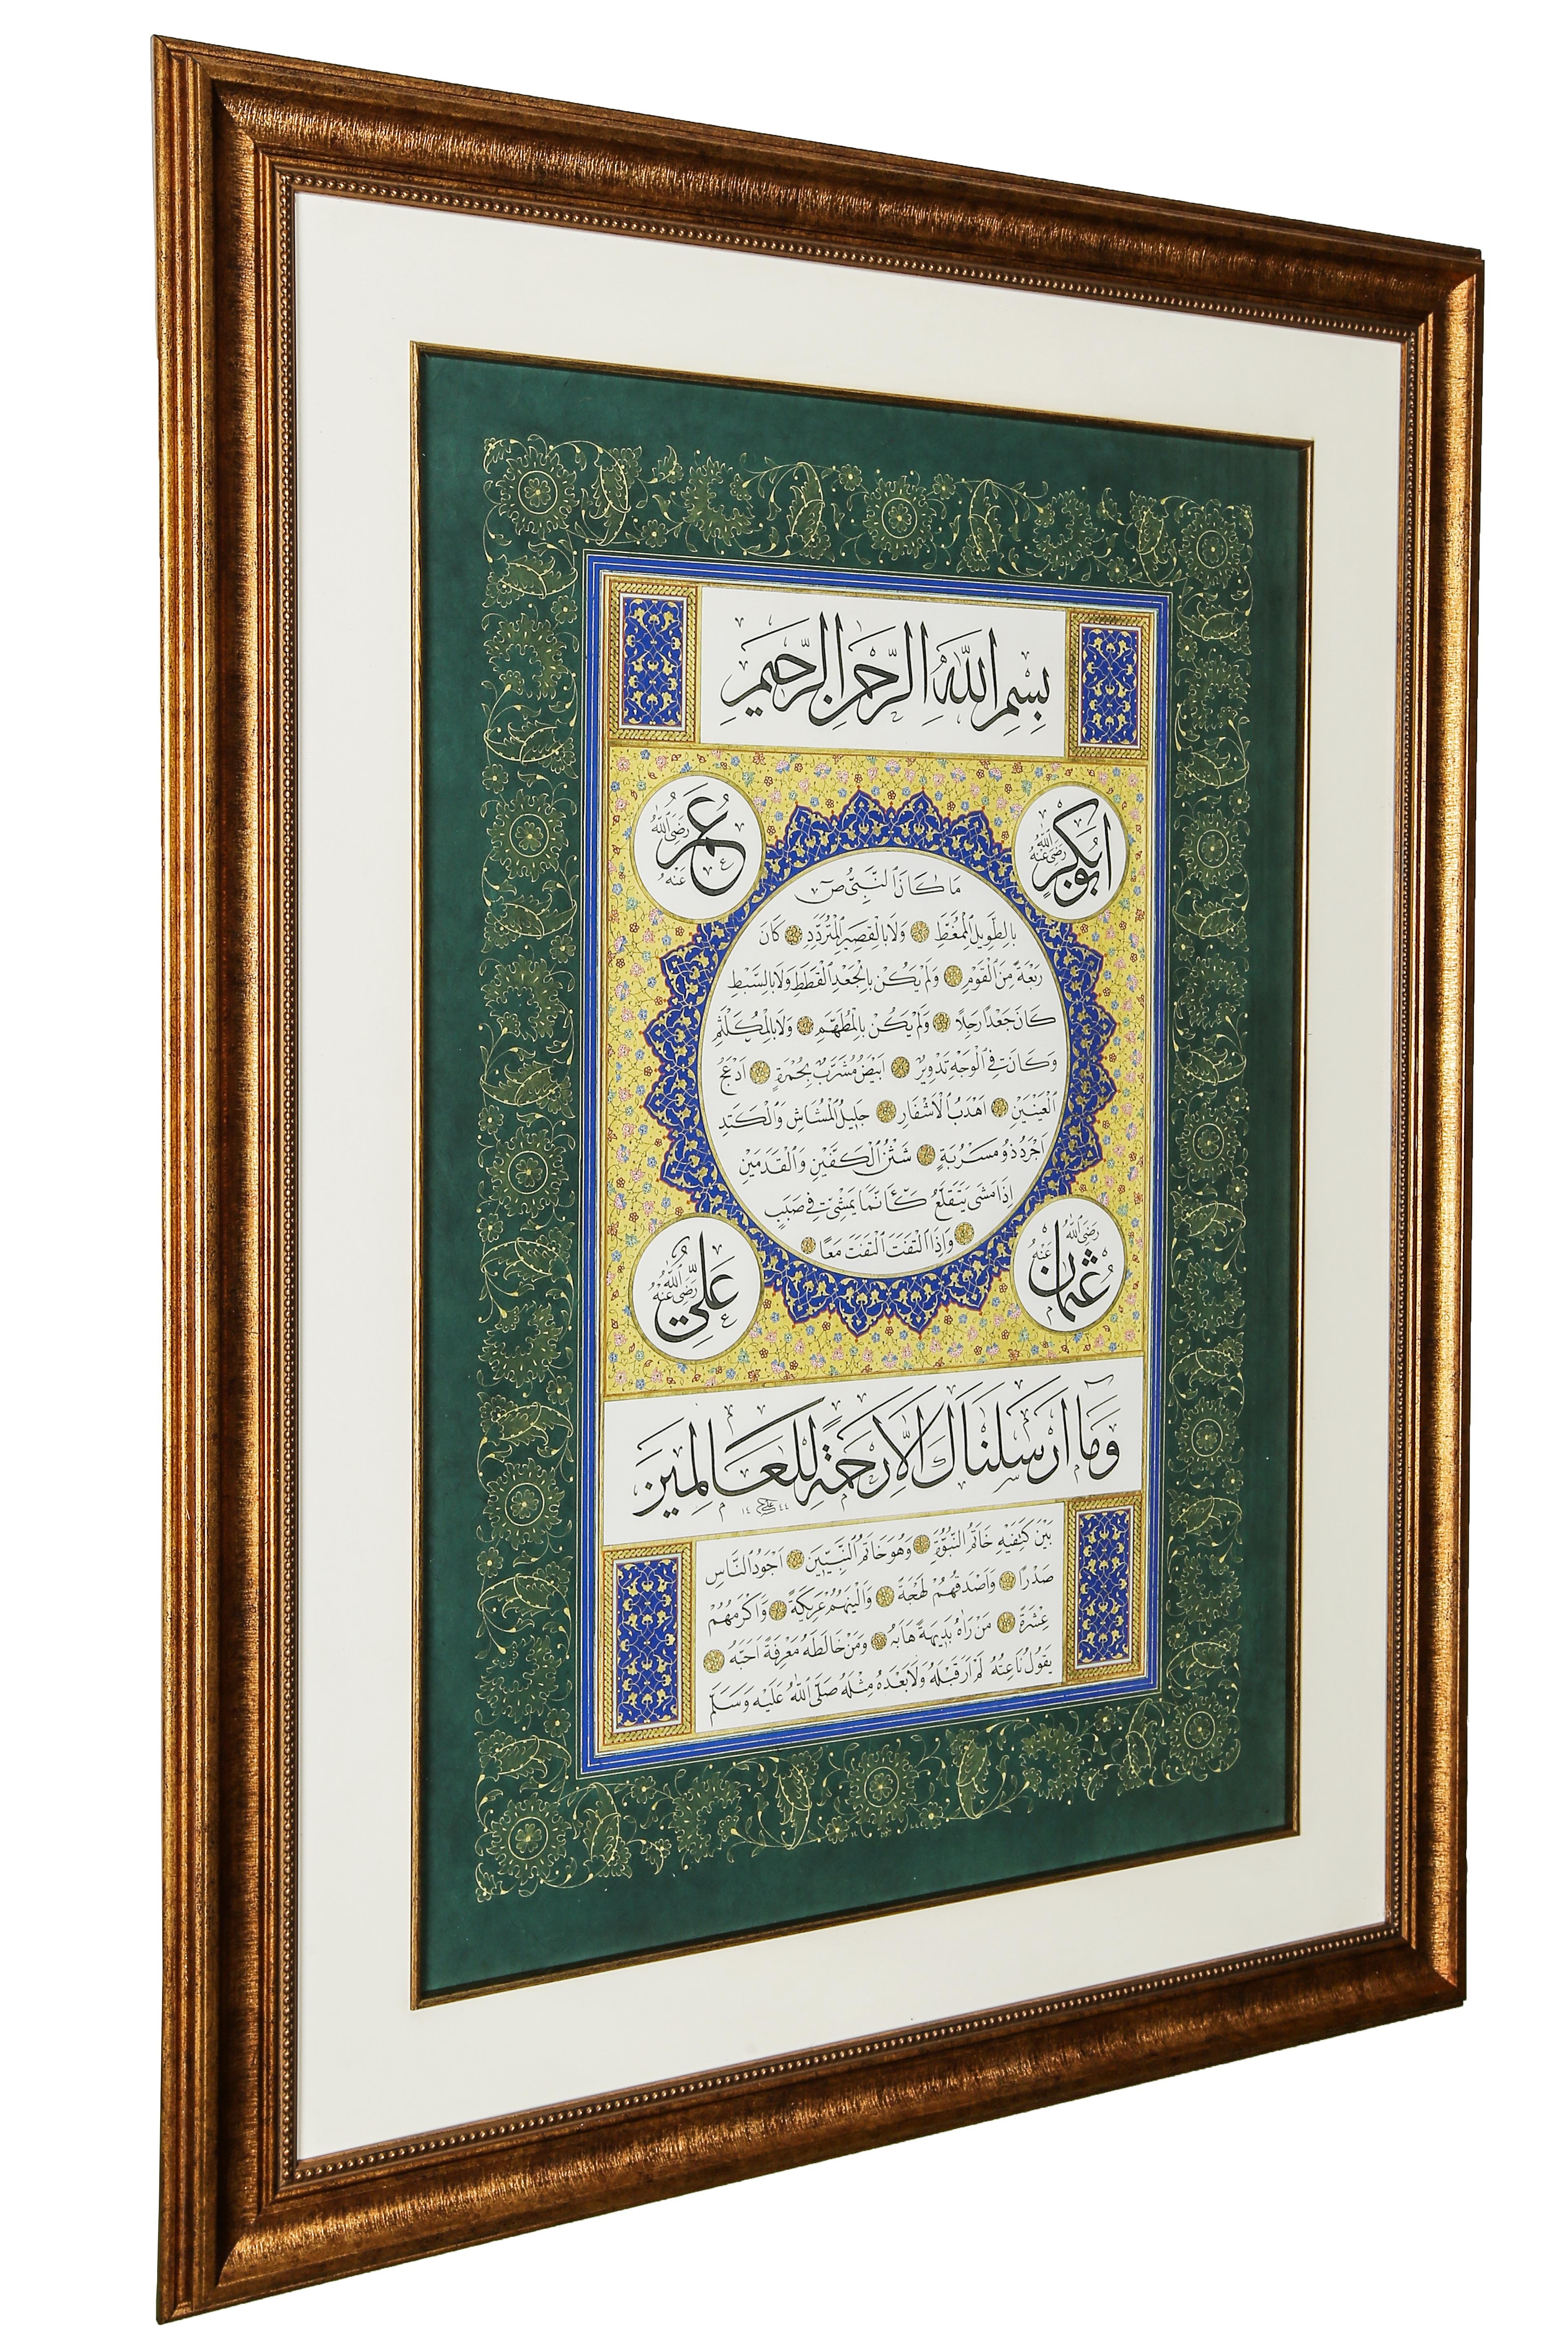 بِسْمِ اللّٰهِ الرَّحْمٰنِ الرَّحِيمِ
اَبُو بَكْرٍ رَضِيَ اللّٰهُ عَنْهُ
عُمَرُ رَضِيَ اللّٰهُ عَنْهُ
مَا كَانَ النَّبِيُّ ص
بِالطَّوِيلِ الْمُمَّغَطِ وَلَا بِالْقَصِيرِ الْمُتَرَدِّدِ كَانَ
رَبْعَةً مِنَ الْقَوْمِ وَلَمْ يَكُنْ بِالْجَعْدِ الْقَطَطِ وَلَا بِالسَّبْطِ
كَانَ جَعْدًا رَجِلًا وَلَمْ يَكُنْ بِالْمُطَهَّمِ وَلَا بِالْمُكَلْثَمِ
وَكَانَ فِي الْوَجْهِ تَدْوِيرٌ اَبْيَضُ مُشَرَّبٌ بِحُمْرَةٍ اَدْعَجُ
الْعَيْنَيْنِ اَهْدَبُ الْاَشْفَارِ جَلِيلُ الْمُشَاشِ وَالْكَتَدِ
اَجْرَدُ ذُو مَسْرُبَةٍ شَثْنُ الْكَفَّيْنِ وَالْقَدَمَيْنِ
اِذَا مَشٰى يَتَقَلَّعُ كَاَنَّمَا يَمْشِي فِي صَبَبٍ
وَاِذَا الْتَفَتَ الْتَفَتَ مَعًا
عُثْمَانُ رَضِيَ اللّٰهُ عَنْهُ
عَلِيٌّ رَضِيَ اللّٰهُ عَنْهُ
وَمَا اَرْسَلْنَاكَ اِلَّا رَحْمَةً لِلْعَالَمِينَ
بَيْنَ كَتِفَيْهِ خَاتَمُ النُّبُوَّةِ وَهُوَ خَاتَمُ النَّبِيِّينَ اَجْوَدُ النَّاسِ
صَدْرًا وَاَصْدَقُهُمْ لَهْجَةً وَاَلْيَنُهُمْ عَرِيكَةً وَاَكْرَمُهُمْ
عِشْرَةً مَنْ رَاٰهُ بَدِيهَةً هَابَهُ وَمَنْ خَالَطَهُ مَعْرِفَةً اَحَبَّهُ
يَقُولُ نَاعِتُهُ لَمْ اَرَ قَبْلَهُ وَلَا بَعْدَهُ مِثْلَهُ صَلَّى اللّٰهُ عَلَيْهِ وَسَلَّمَ